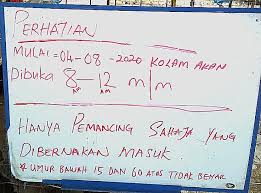 PERHATIAN
MULAI = 04-08-2020 KOLAM AKAN
Dibuka 8 - 12 m|m
AM
HANYA PEMANCING SAHAJA YANG
DIBERNAKAN MASUK.
* UMUR BAWAH 15 DAN 60 ATAS TIDAK BENAR